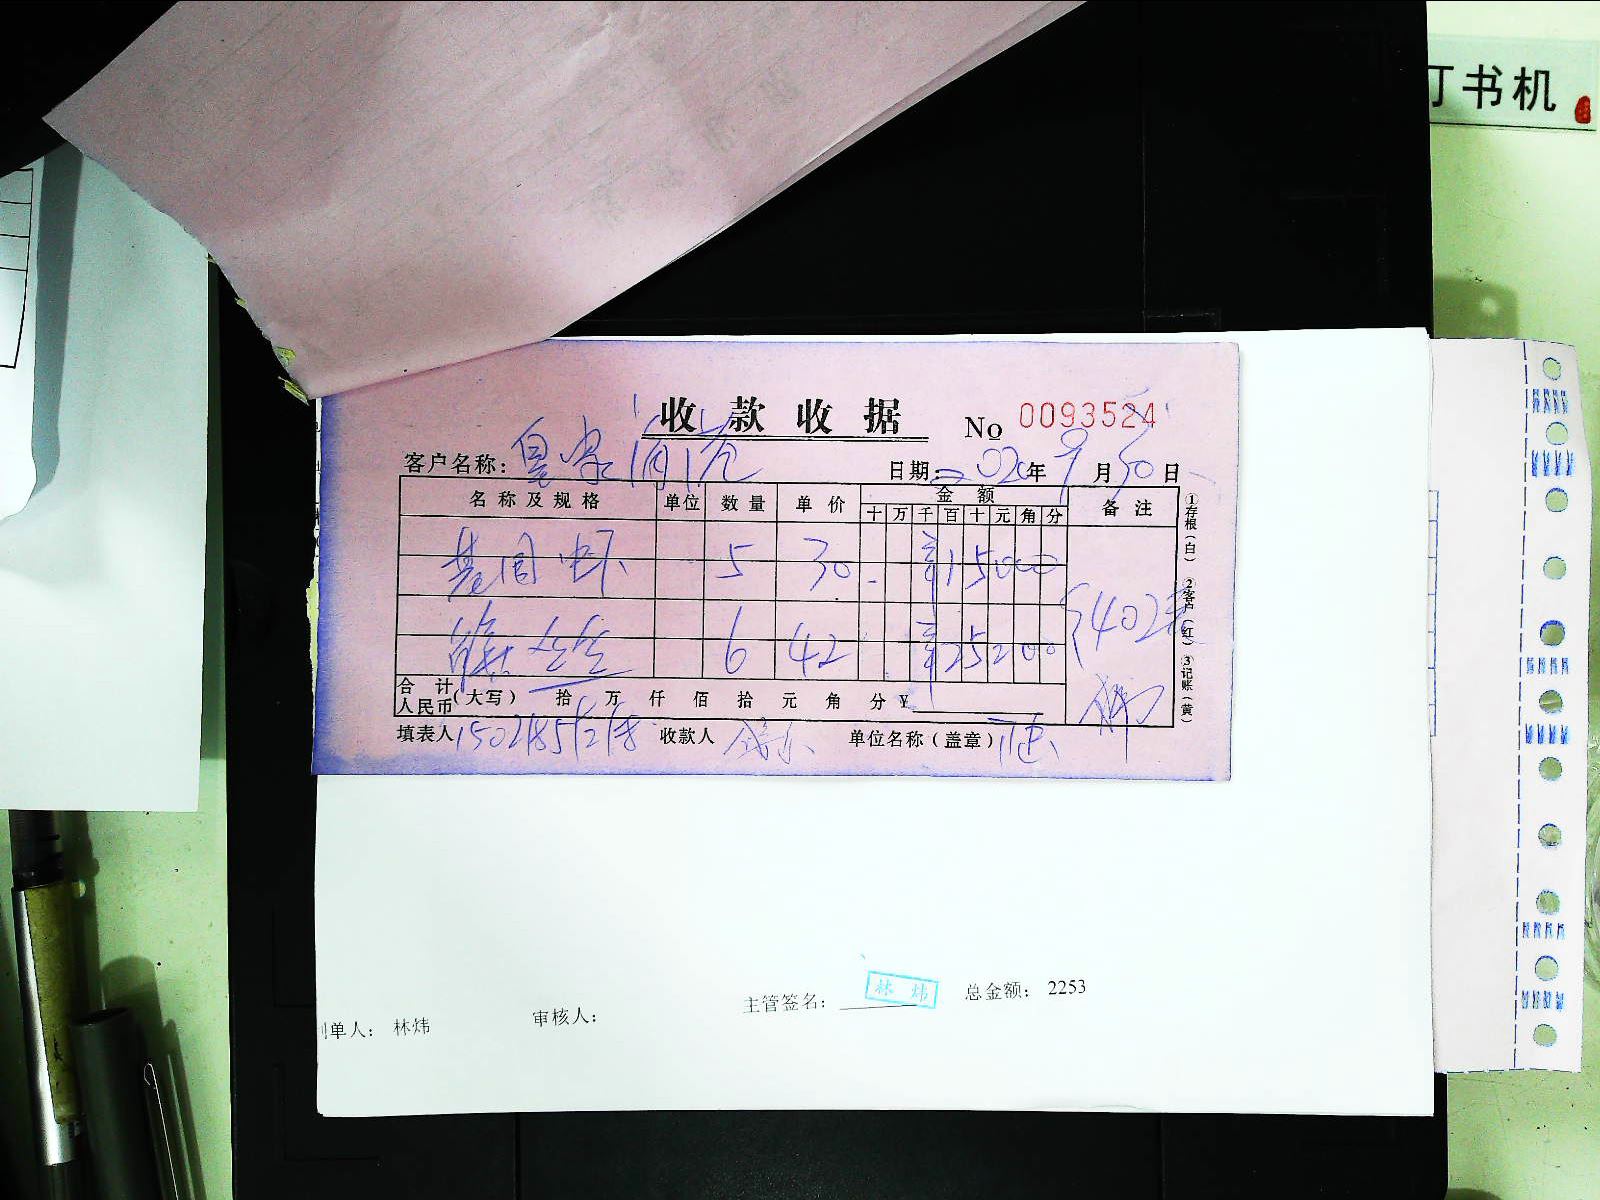 订书机
收款收据
No 0093524
客户名称： 日期：2020年9月30日
名称及规格 单位 数量 单价 金额 备注
十 万 千 百 十 元 角 分
基围虾 5 30. ¥15000
6 42 ¥25200
402元
合计人民币(大写) 拾 万 仟 佰 拾 元 角 分 ¥
填表人 15021851218 收款人 单位名称（盖章）
①存根（白） ②客户（红） ③记账（黄）
林炜
主管签名： 总金额： 2253
单人： 林炜 审核人：